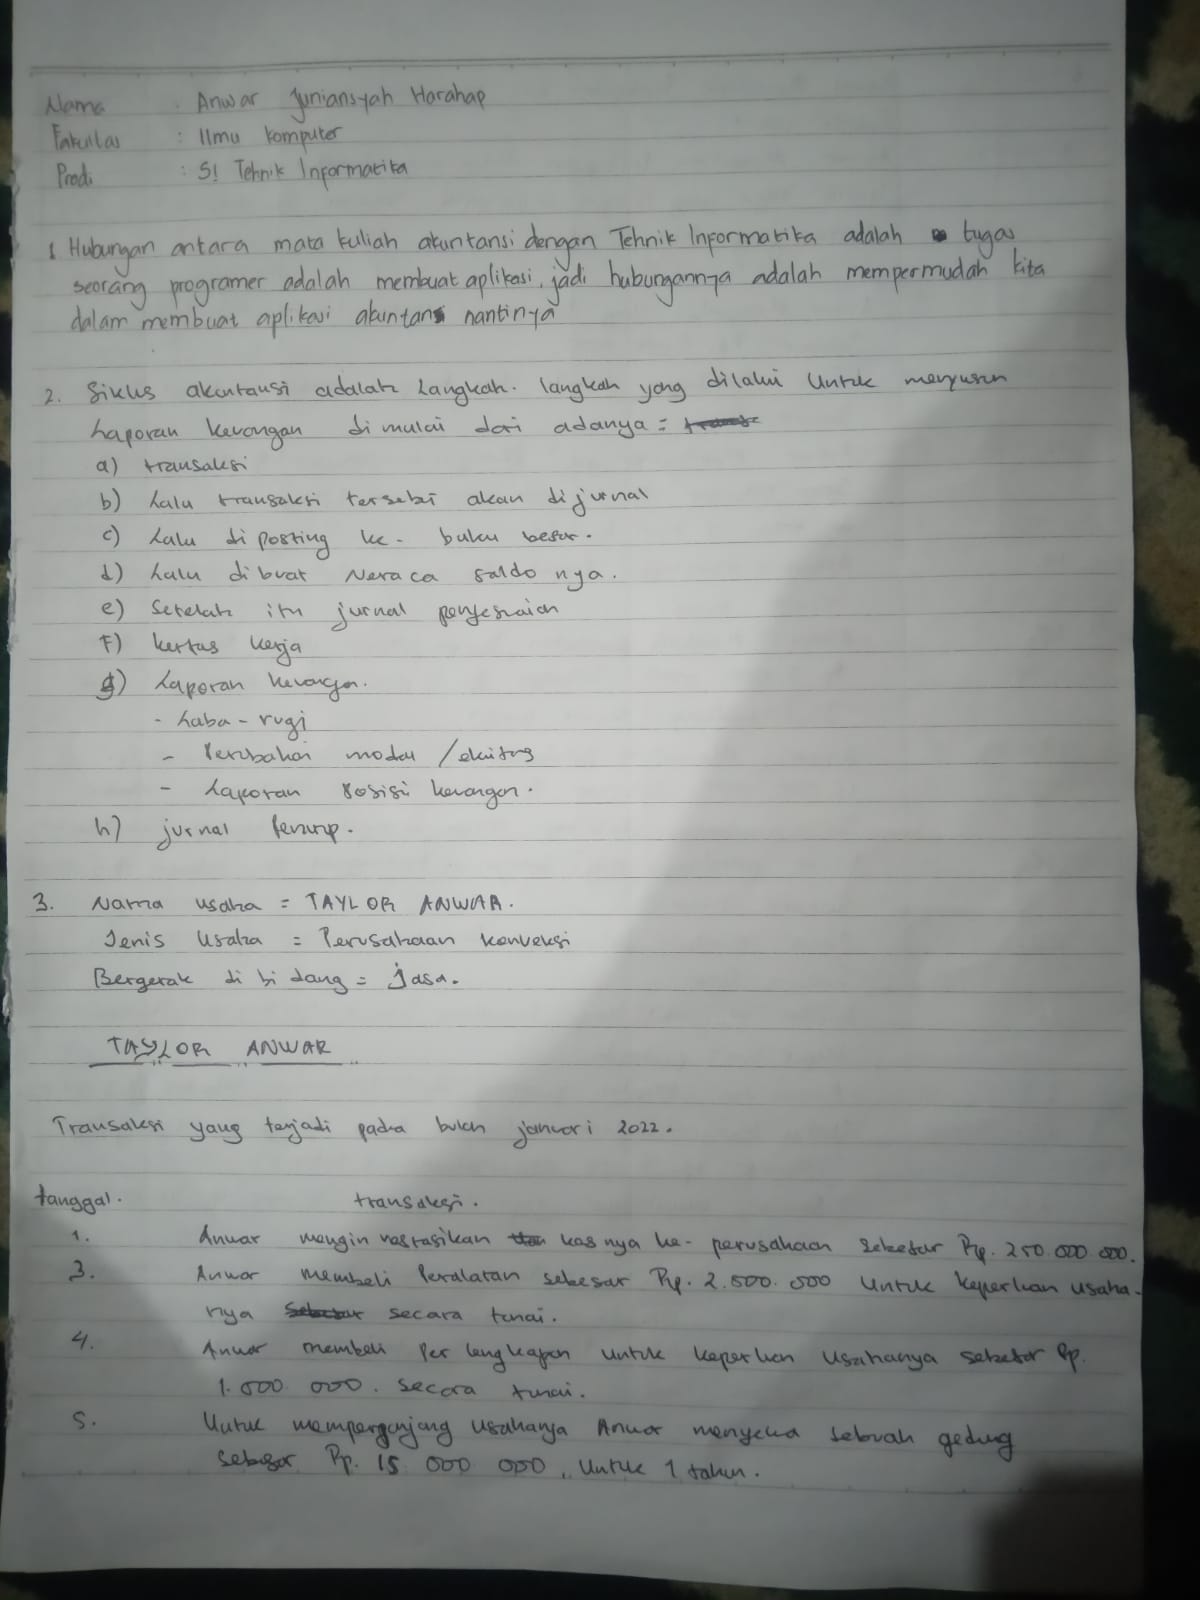 Nama : Anwar Juniansyah Harahap
Fakultas : Ilmu Komputer
Prodi : S1 Tehnik Informatika
1 Hubungan antara mata kuliah akuntansi dengan Tehnik Informatika adalah tugas
seorang programer adalah membuat aplikasi, jadi hubungannya adalah mempermudah kita
dalam membuat aplikasi akuntans nantinya
2. Siklus akuntansi adalah Langkah-langkah yang dilalui Untuk menyusun
Laporan Keuangan di mulai dari adanya =
a) transaksi
b) Lalu transaksi tersebut akan di jurnal
c) Lalu di posting ke- buku besar.
d) Lalu dibuat Neraca saldo nya.
e) Setelah itu jurnal penyesuaian
F) kertas kerja
g) Laporan keuangan.
- Laba - rugi
- Perubahan modal / ekuitas
- Laporan posisi keuangan.
h) jurnal Penutup.
3. Nama usaha = TAYLOR ANWAR.
Jenis Usaha = Perusahaan konveksi
Bergerak di bidang = jasa.
TAYLOR ANWAR
Transaksi yang terjadi pada bulan januari 2022.
tanggal. transaksi.
1. Anwar menginvestasikan kas nya ke- perusahaan sebesar Rp. 250 000 000.
3. Anwar membeli Peralatan sebesar Rp. 2.500.000 Untuk keperluan usaha-
nya secara tunai.
4. Anwar membeli Perlengkapan untuk keperluan usahanya sebesar Rp.
1.000 000. secara tunai.
5. Untuk memperpanjang usahanya Anwar menyewa sebuah gedung
sebesar Rp. 15 000 000, Untuk 1 tahun.